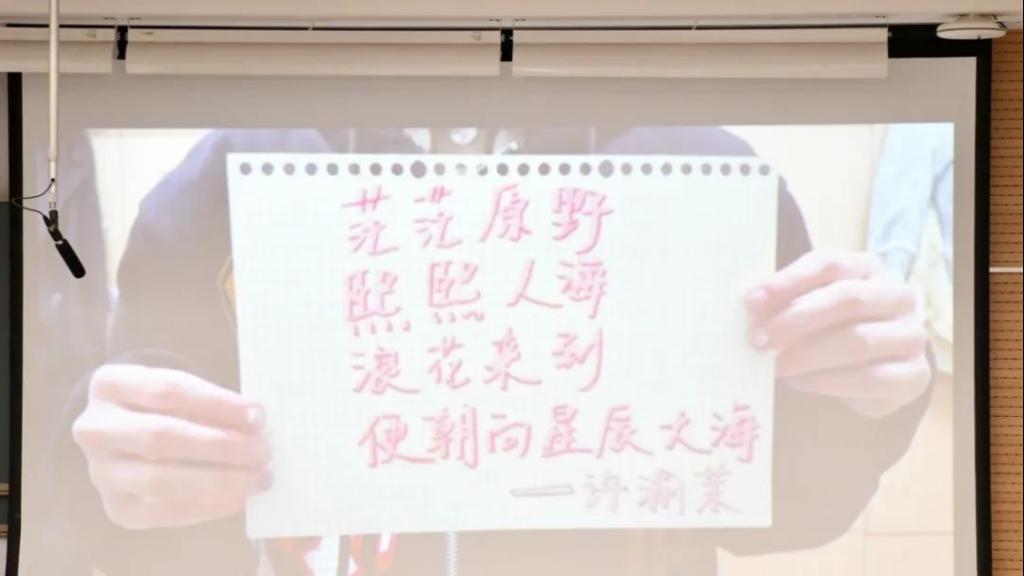 茫茫原野
熙熙人海
浪花来到
便朝向星辰大海
——许渝茉